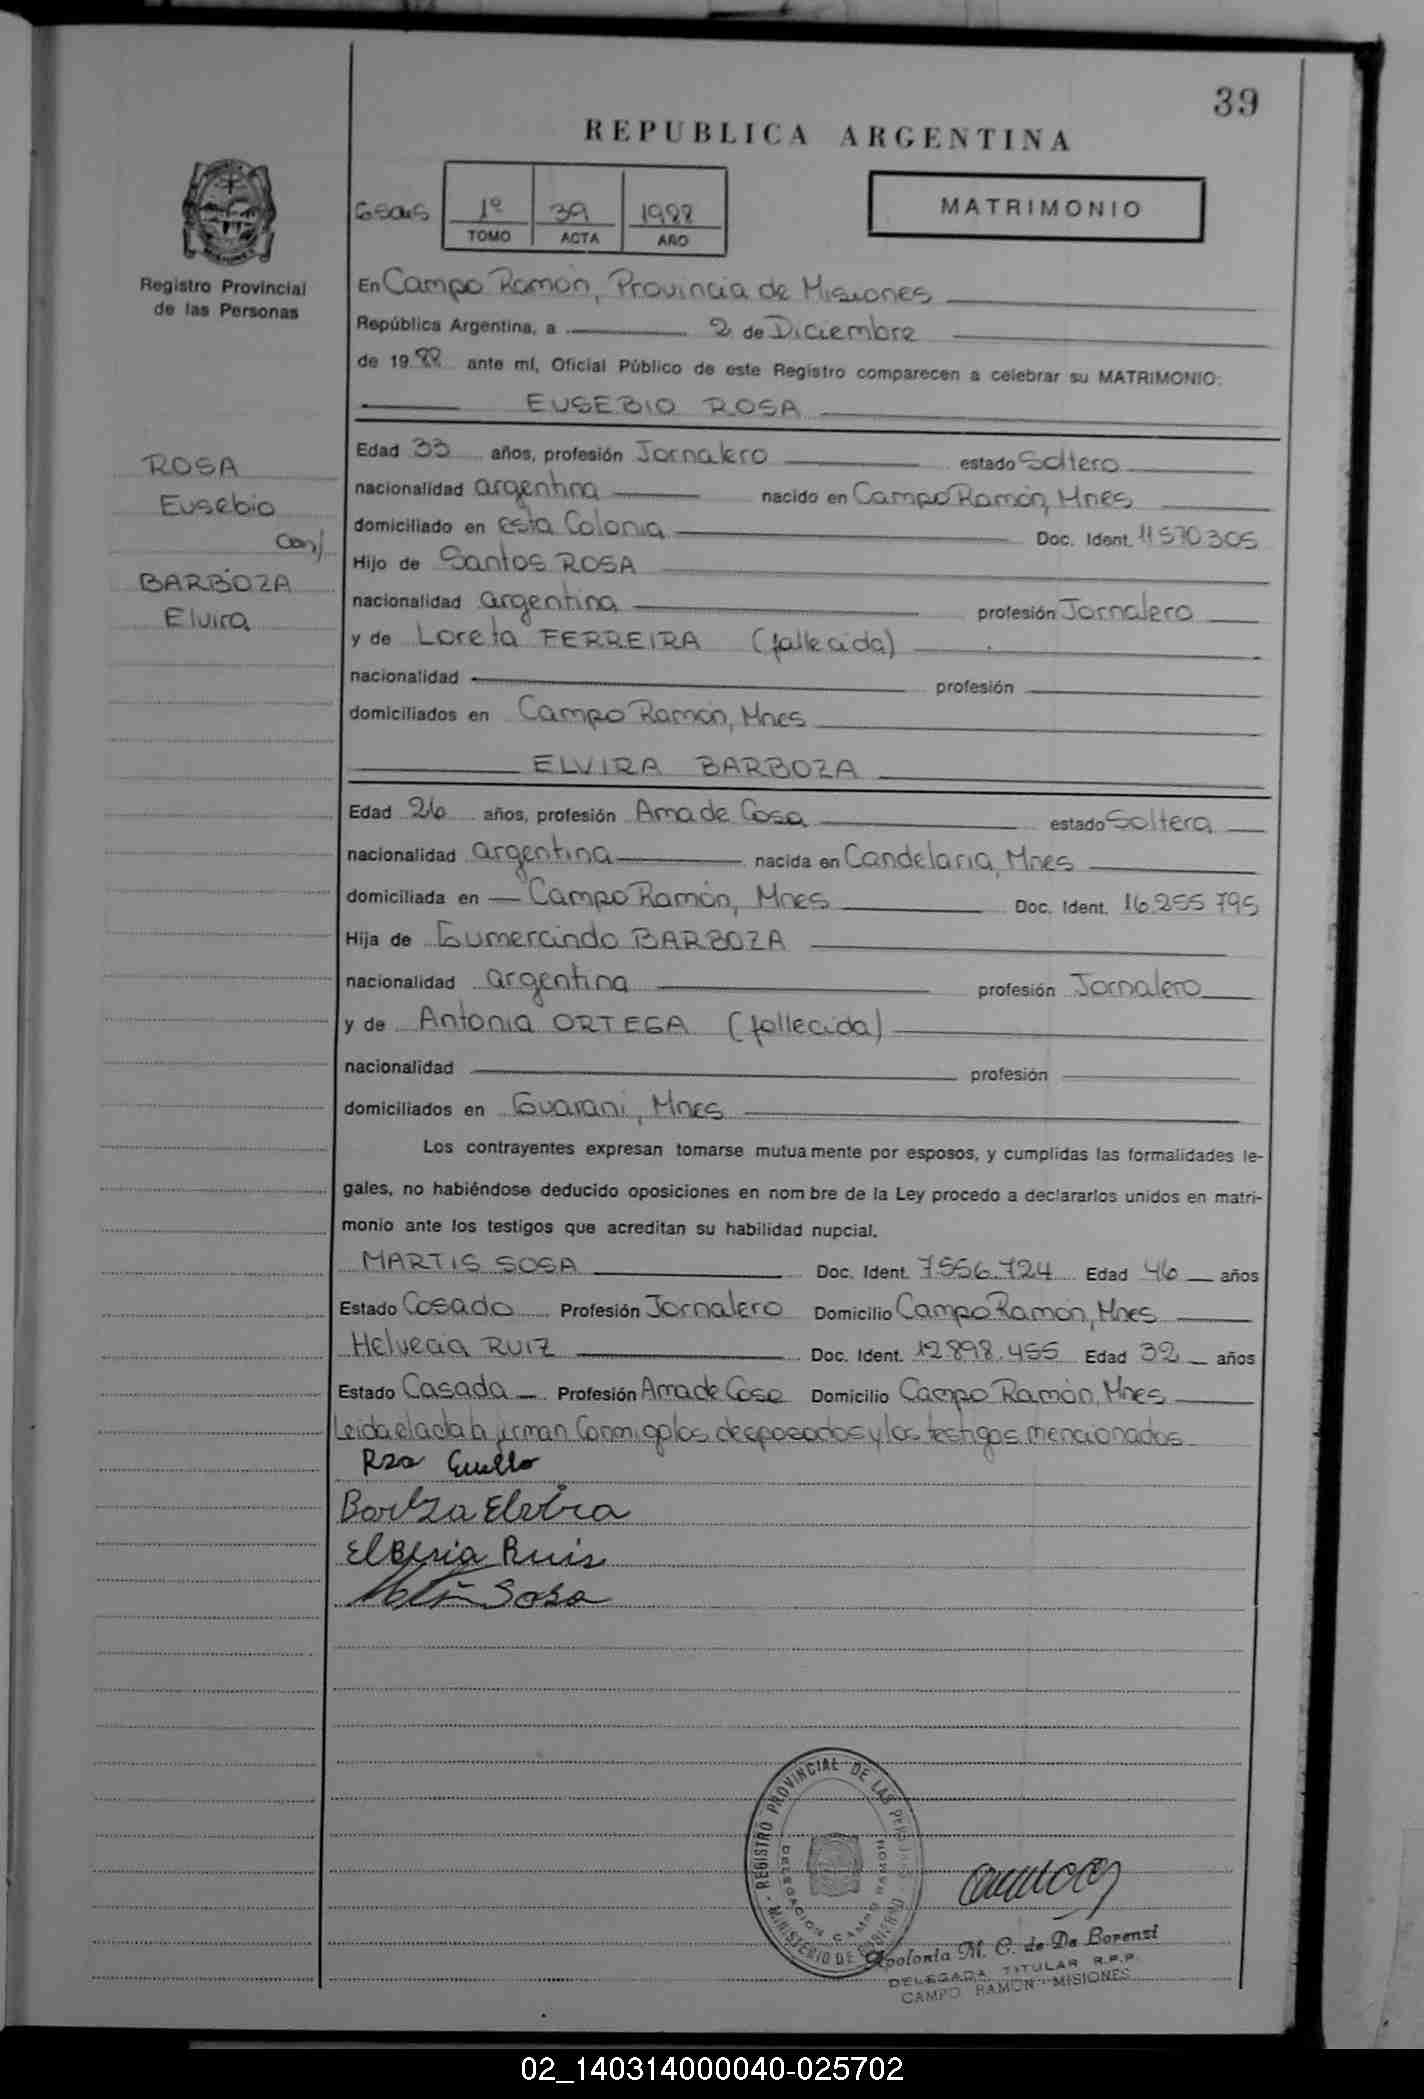 39
REPUBLICA ARGENTINA
1º 39 1988
TOMO ACTA AÑO
MATRIMONIO
Registro Provincial
de las Personas
En Campo Ramón, Provincia de Misiones
República Argentina, a 2 de Diciembre
de 1988 ante mí, Oficial Público de este Registro comparecen a celebrar su MATRIMONIO:
EUSEBIO ROSA
ROSA
Eusebio
con/
BARBOZA
Elvira
Edad 33 años, profesión Jornalero estado Soltero
nacionalidad argentina nacido en Campo Ramón, Mnes
domiciliado en esta Colonia Doc. Ident. 11.570.305
Hijo de Santos ROSA
nacionalidad argentina profesión Jornalero
y de Loreta FERREIRA (fallecida)
nacionalidad profesión
domiciliados en Campo Ramón, Mnes
ELVIRA BARBOZA
Edad 26 años, profesión Ama de Casa estado Soltera
nacionalidad argentina nacida en Candelaria, Mnes
domiciliada en Campo Ramón, Mnes Doc. Ident. 16.255.795
Hija de Gumercindo BARBOZA
nacionalidad argentina profesión Jornalero
y de Antonia ORTEGA (fallecida)
nacionalidad profesión
domiciliados en Guarani, Mnes
Los contrayentes expresan tomarse mutuamente por esposos, y cumplidas las formalidades le-
gales, no habiéndose deducido oposiciones en nombre de la Ley procedo a declararlos unidos en matri-
monio ante los testigos que acreditan su habilidad nupcial.
MARTIS SOSA Doc. Ident. 7.556.724 Edad 46 años
Estado Casado Profesión Jornalero Domicilio Campo Ramón, Mnes
Helvecia RUIZ Doc. Ident. 12.898.455 Edad 32 años
Estado Casada Profesión Ama de Casa Domicilio Campo Ramón, Mnes
Leida el acta la firman Conmigo los desposados y los testigos mencionados
Barbza Elvira
Ruis
Sosa
REGISTRO PROVINCIAL DE LAS PERSONAS
DELEGACION CAMPO RAMON
MINISTERIO DE GOBIERNO
Apolonia M. C. de Da Borenzi
DELEGADA TITULAR R.P.P.
CAMPO RAMON - MISIONES
02_140314000040-025702